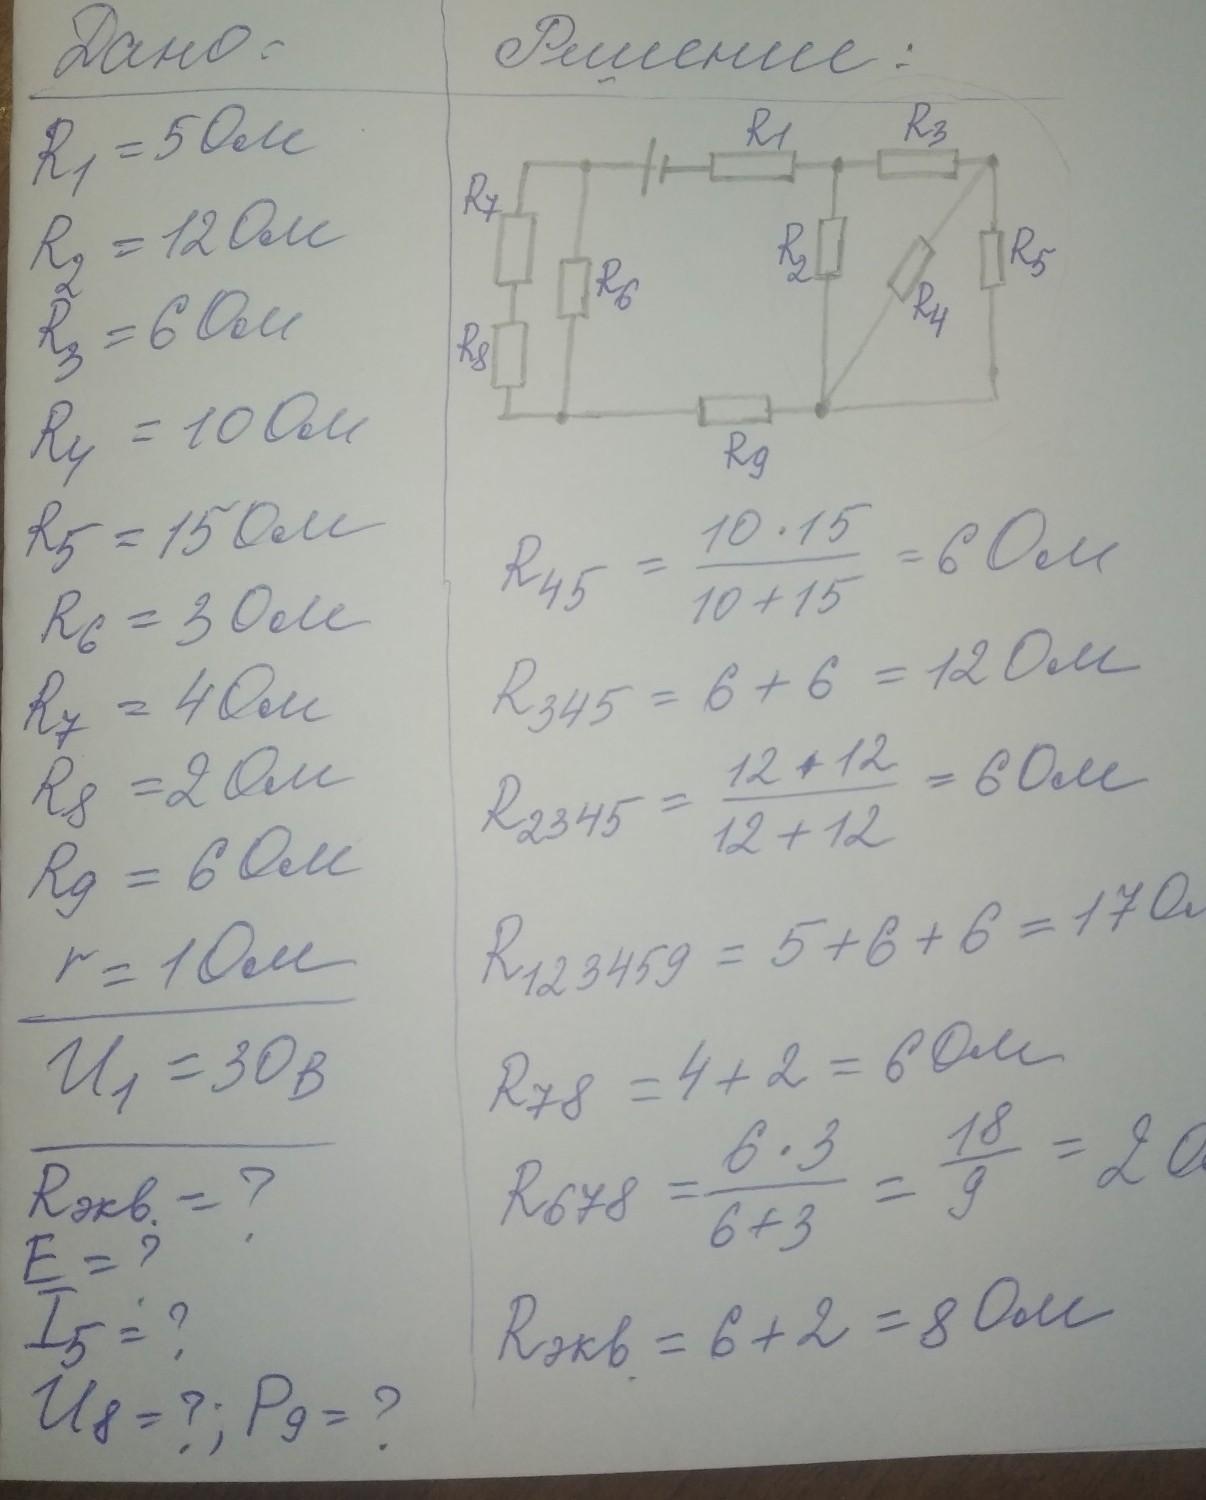 Дано:
R1 = 5 Ом
R2 = 12 Ом
R3 = 6 Ом
R4 = 10 Ом
R5 = 15 Ом
R6 = 3 Ом
R7 = 4 Ом
R8 = 2 Ом
R9 = 6 Ом
r = 1 Ом
U1 = 30 в
Rэкв. = ?
E = ?
I5 = ?
U8 = ?; P9 = ?
Решение:
R1
R3
R7
R6
R2
R5
R4
R8
R9
R45 = 10 · 15 / 10 + 15 = 6 Ом
R345 = 6 + 6 = 12 Ом
R2345 = 12 · 12 / 12 + 12 = 6 Ом
R123459 = 5 + 6 + 6 = 17 Ом
R78 = 4 + 2 = 6 Ом
R678 = 6 · 3 / 6 + 3 = 18 / 9 = 2 О
Rэкв. = 6 + 2 = 8 Ом